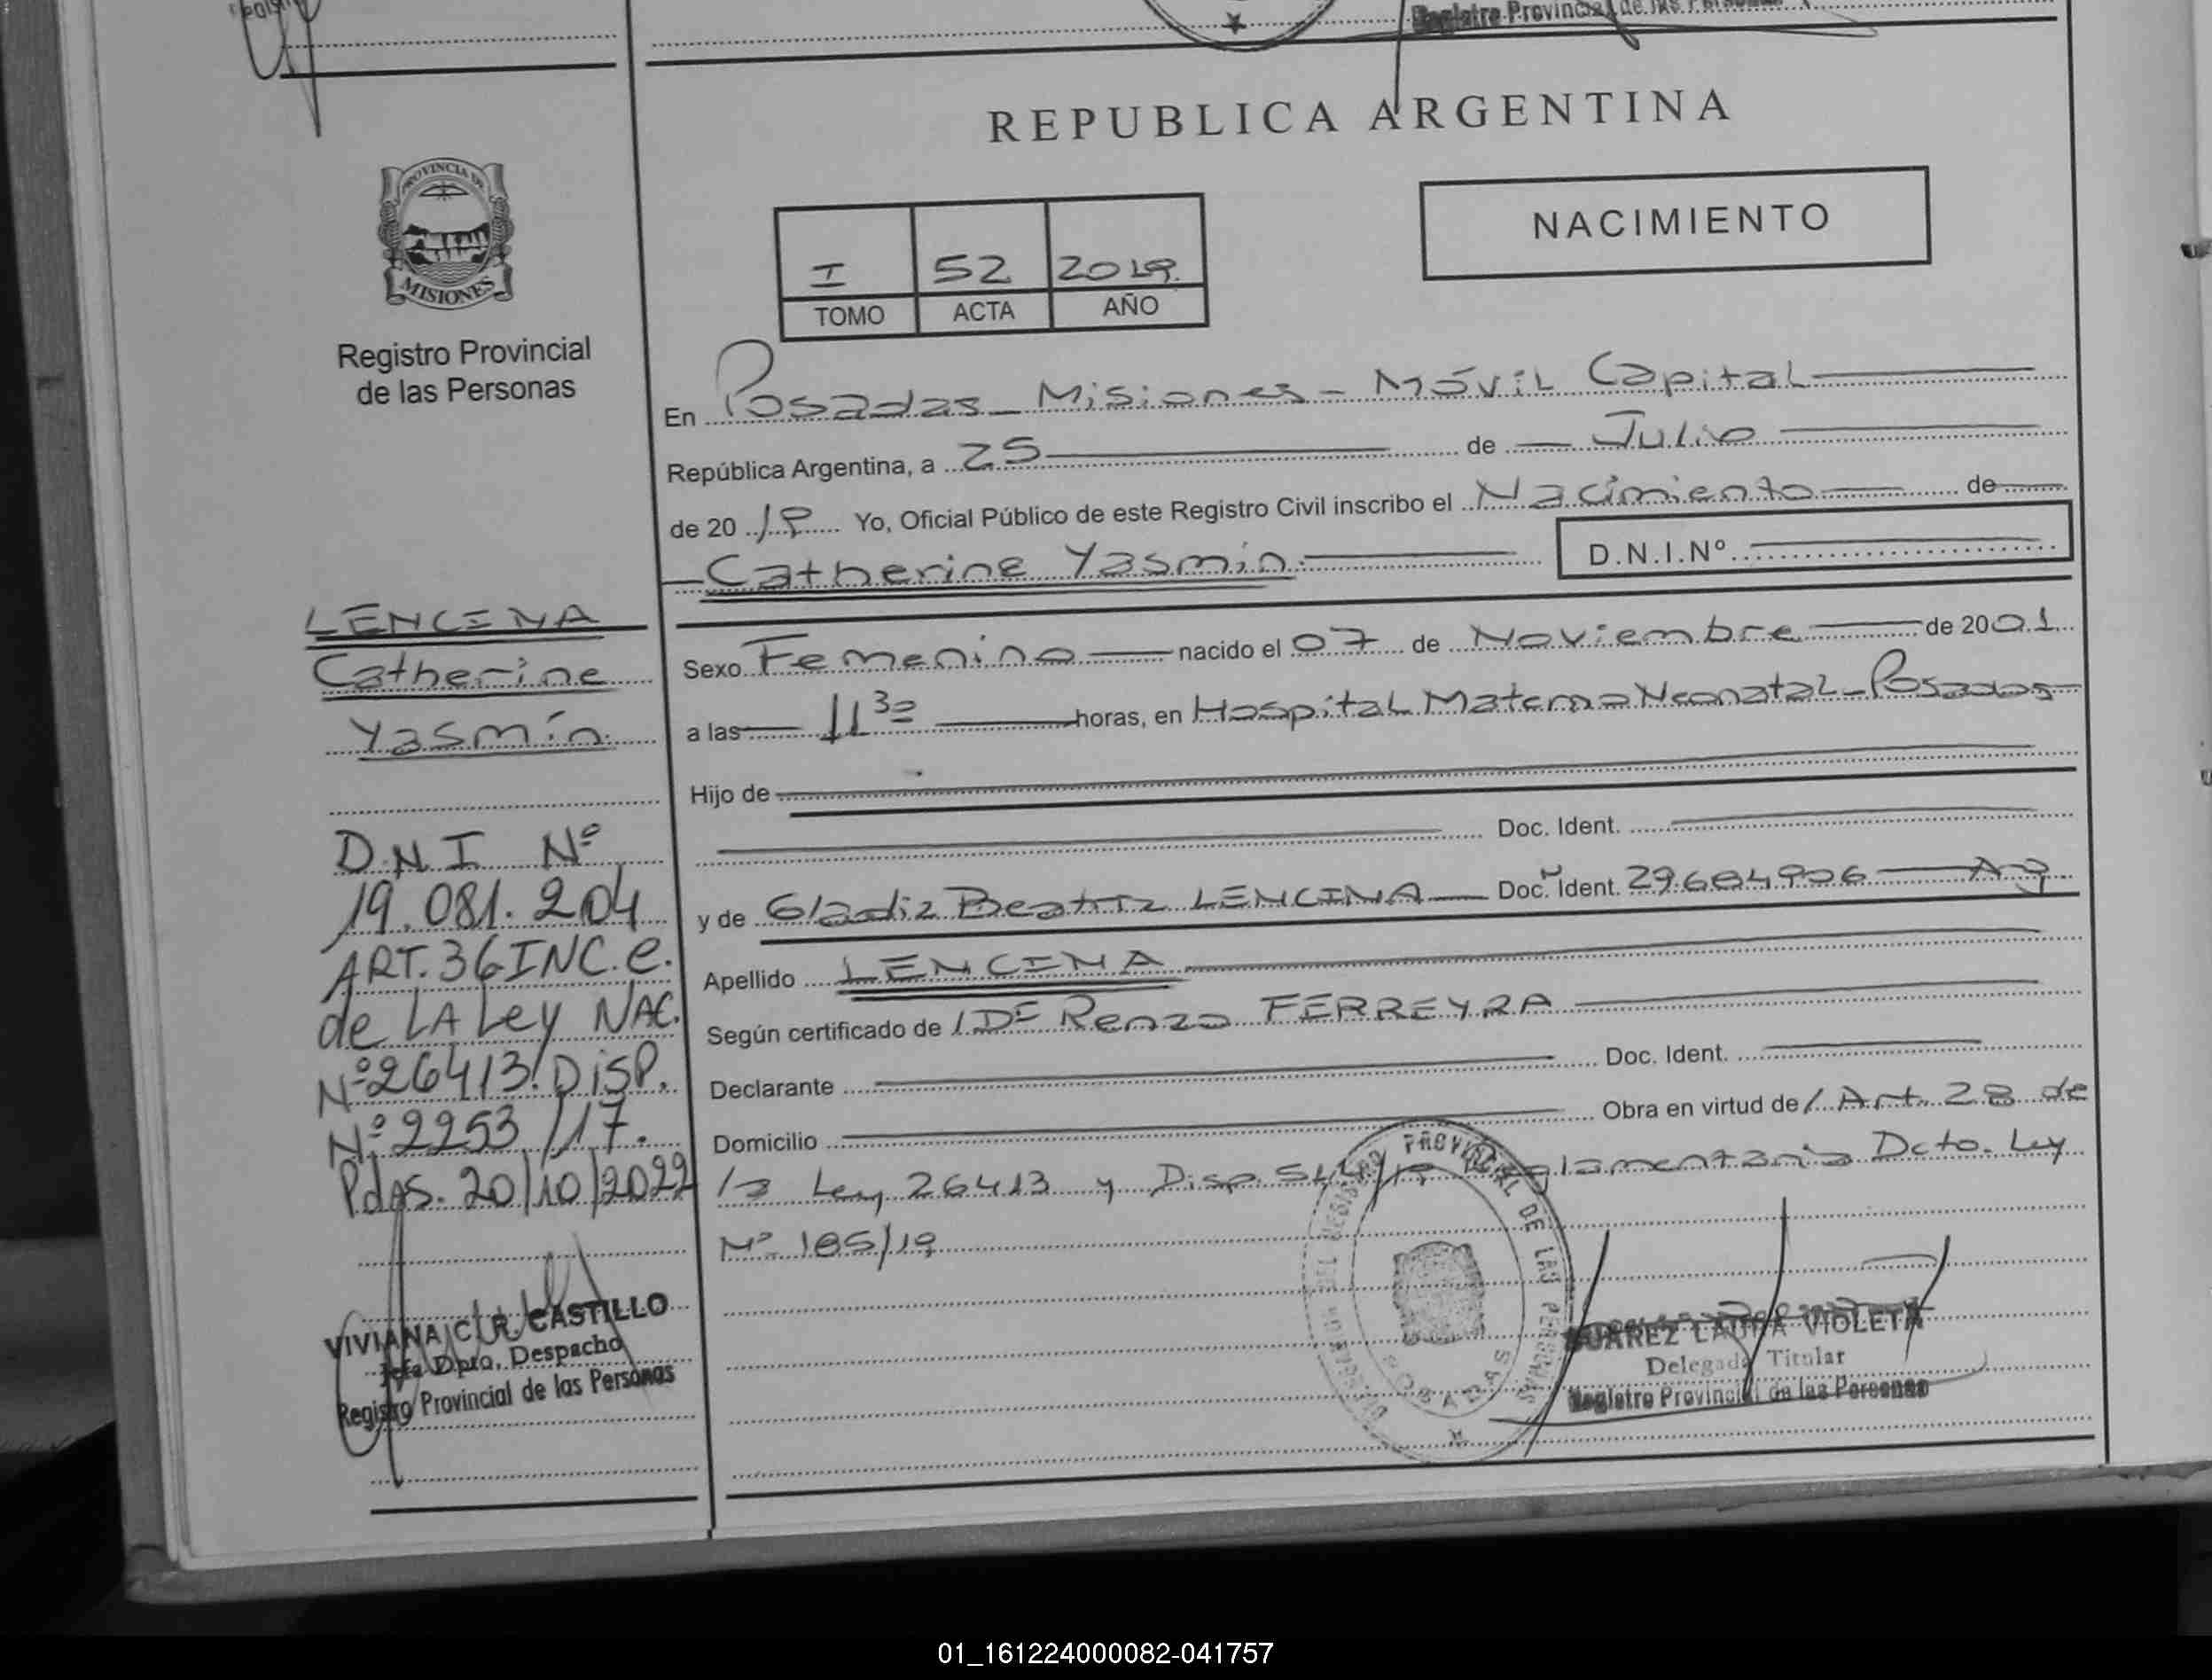 Registre Provincial de las Personas
REPUBLICA ARGENTINA
PROVINCIA DE
MISIONES
Registro Provincial
de las Personas
NACIMIENTO
I 52 2019
TOMO ACTA AÑO
En Posadas - Misiones - Móvil Capital
República Argentina, a 25 de Julio
de 20 19 Yo, Oficial Público de este Registro Civil inscribo el Nacimiento de
Catherine Yasmín D.N.I.Nº
LENCINA
Catherine
Yasmín
D.N.I Nº
19.081.204
ART. 36 INC. e.
de LA Ley NAC.
Nº 26413. DISP.
Nº 2253/17.
Pdas. 20/10/2022
VIVIANA C. R. CASTILLO
Jefa Dpto. Despacho
Registro Provincial de las Personas
Sexo Femenino nacido el 07 de Noviembre de 2001
a las 11 30 horas, en Hospital Materno Neonatal - Posadas
Hijo de
Doc. Ident.
y de Gladiz Beatriz LENCINA Doc. Ident. 29.684.906 Arg
Apellido LENCINA
Según certificado de / Dr Renzo FERREYRA
Declarante Doc. Ident.
Domicilio Obra en virtud de / Art. 28 de
la Ley 26413 y Disp. Reglamentaria Dcto. Ley
Nº 185/19
PROVINCIAL DE LAS PERSONAS
POSADAS
SUAREZ LAURA VIOLETA
Delegada Titular
Registro Provincial de las Personas
01_161224000082-041757